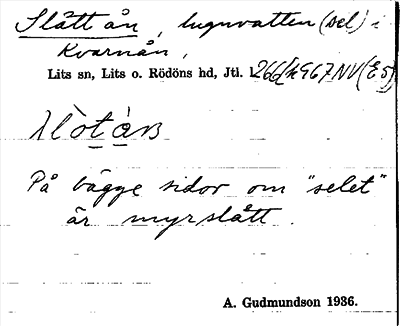 Slått ån, lugnvatten (sel) i
Kvarnån,
Lits sn, Lits o. Rödöns hd, Jtl.
På bägge sidor om "selet"
är myrslått.
A. Gudmundson 1936.